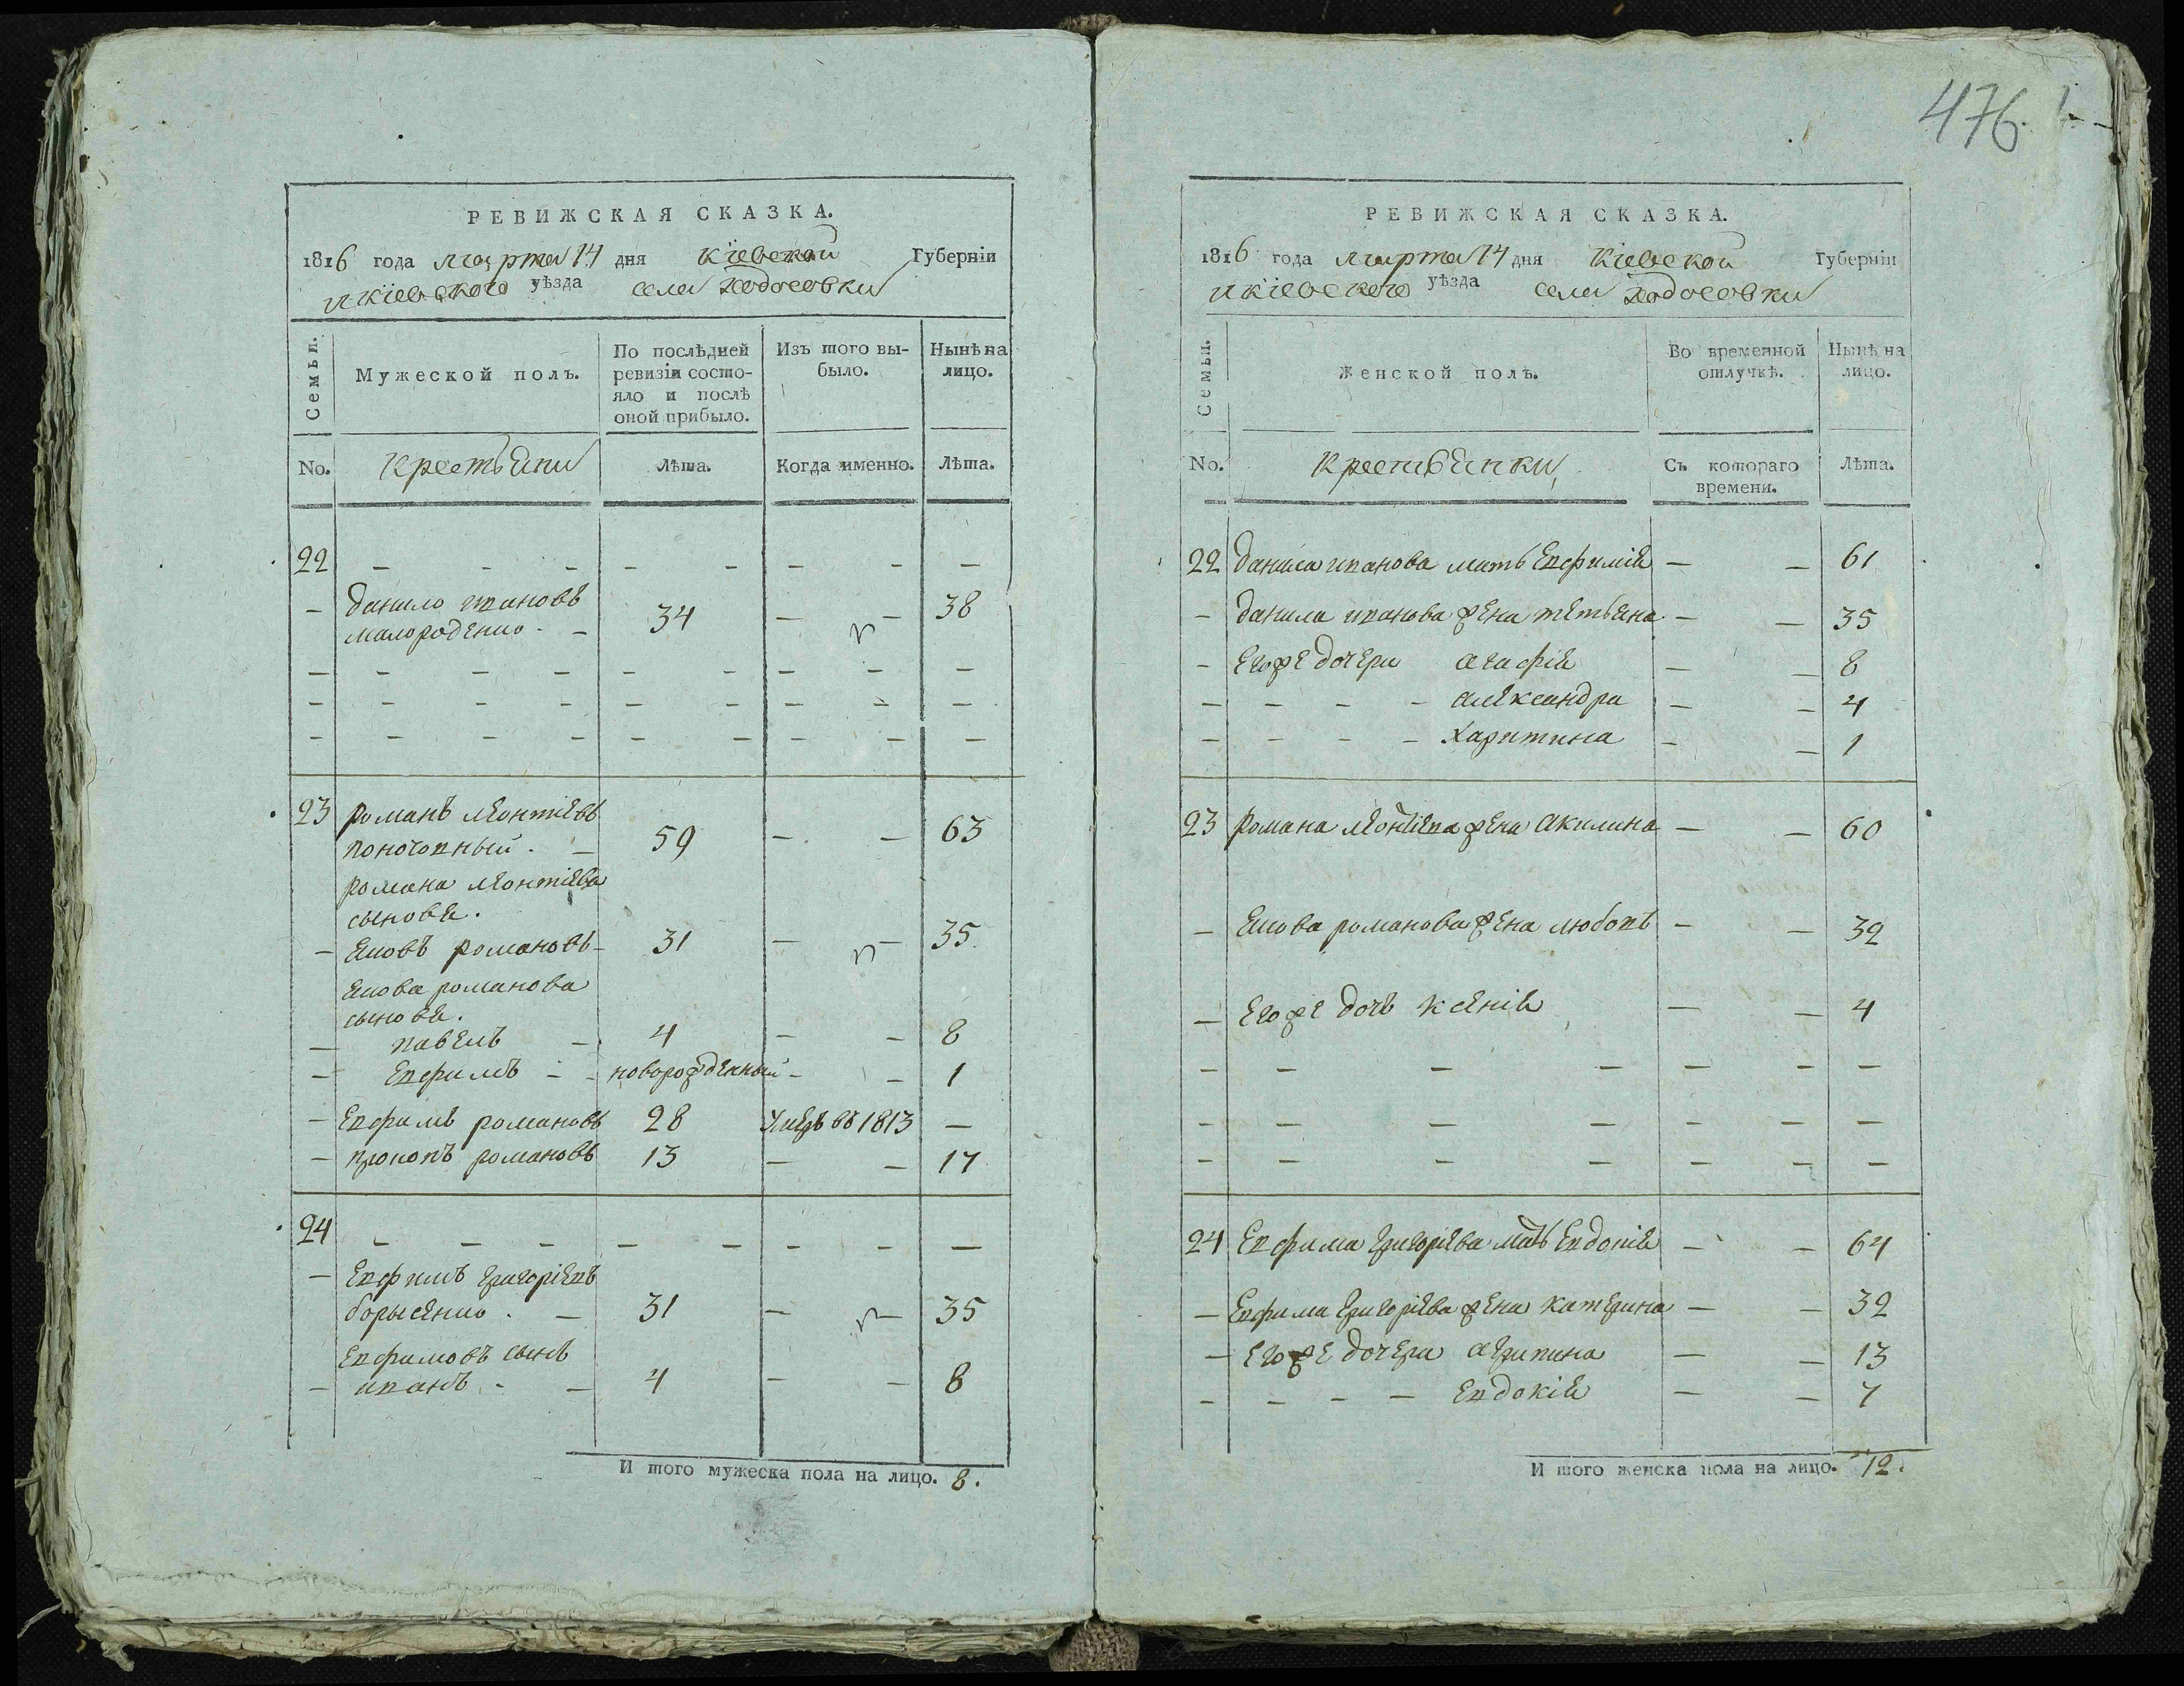 476.
РЕВИЖСКАЯ СКАЗКА.
1816 года марта 14 дня Кіевской Губерніи
и кіевского уѣзда села Ходосовки
Семьи.
Мужеской полъ.
По послѣдней ревизіи состояло и послѣ оной прибыло.
Изъ того выбыло.
Нынѣ на лицо.
No. крестьяни Лѣта. Когда именно. Лѣта.
22 — — — — — — — —
— данило ивановъ
малороденко - — 34 — — 38
— — — — — — — — —
— — — — — — — — —
— — — — — — — — —
23 романъ леонтіевъ
поночовный - — 59 — — 63
романа леонтіева
сыновя.
— яковъ романовъ - 31 — — 35
якова романова
сыновя.
— павелъ — 4 — — 8
— Евфимъ - - новорожденный - — 1
— Евфимъ романовъ 28 Умеръ въ 1813 —
— прокопъ романовъ 13 — — 17
24 — — — — — — — —
— Евфимъ григоріевъ
борысенко . — 31 — — 35
Евфимовъ сынъ
— иванъ - — 4 — — 8
И того мужеска пола на лицо. 8.
РЕВИЖСКАЯ СКАЗКА.
1816 года марта 14 дня Кіевской Губерніи
и кіевского уѣзда села Ходосовки
Семьи.
Женской полъ.
Во временной отлучкѣ.
Нынѣ на лицо.
No. крестьянки Съ котораго времени. Лѣта.
22 данила иванова мать Евфимія — — 61
— данила иванова жена тетьяна — — 35
— Егоже дочери агафія — — 8
— — — — александра — — 4
— — — — харитина — — 1
23 романа леонтіева жена акилина — — 60
— якова романова жена любовь — — 32
— Егоже дочь ксенія — — 4
— — — — — — —
— — — — — — —
— — — — — — —
24 Евфима григоріева мать Евдокія — — 64
— Евфима григоріева жена катерина — — 32
— Егоже дочери агрипина — — 13
— — — — Евдокія — — 7
И того женска пола на лицо. 12.